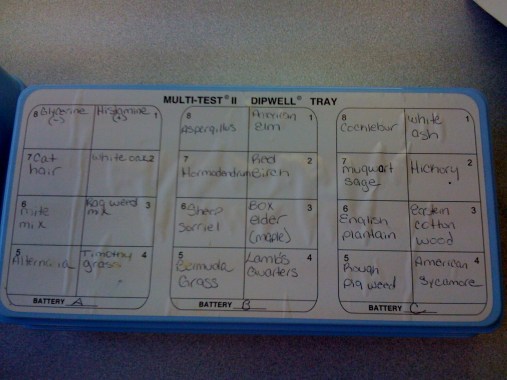 MULTI-TEST® II DIPWELL® TRAY
8 Glycerine (-)
Histamine (+) 1
7 Cat hair
White oak 2
6 mite mix
Rag weed mix 3
5 Alternaria
Timothy grass 4
BATTERY A
8 Aspergillus
American Elm 1
7 Hormodendrum
Red Birch 2
6 Sheep Sorrel
Box elder (maple) 3
5 Bermuda Grass
Lambs Quarters 4
BATTERY B
8 Cocklebur
White ash 1
7 mugwort sage
Hickory 2
6 English plantain
Eastern cotton wood 3
5 Rough pig weed
American Sycamore 4
BATTERY C